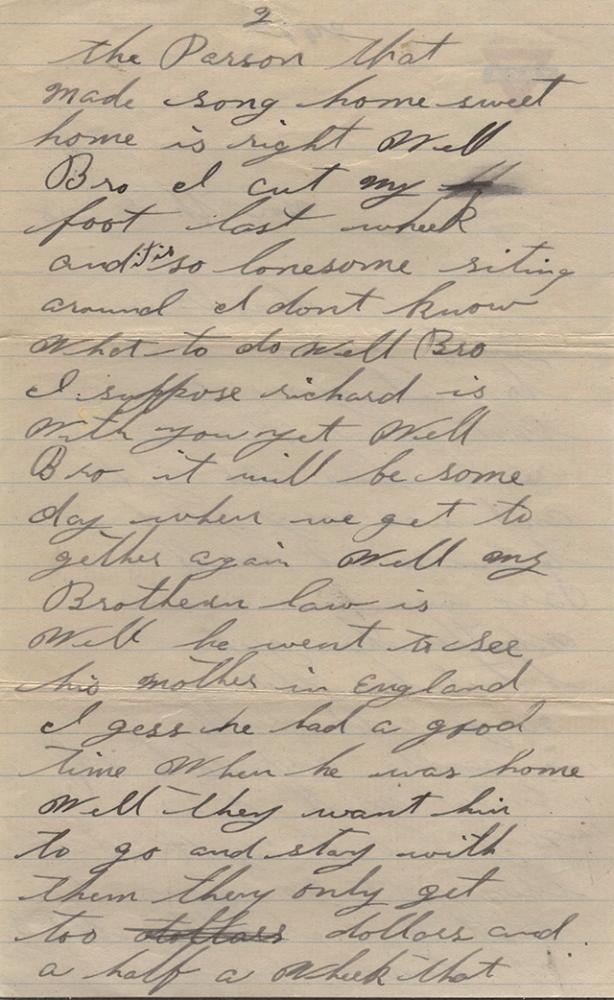 2
the Person that
made song home sweet
home is right Well
Bro I cut my
foot last wheek
and it is so lonesome siting
around I dont know
What to do Well Bro
I suppose richard is
With you yet Well
Bro it will be some
day when we get to
gether again Well my
Brotherin law is
Well he went to see
his mother in England
I gess he had a good
time When he was home
Well they want him
to go and stay with
them they only get
too dollars dollars and
a half a Wheek that